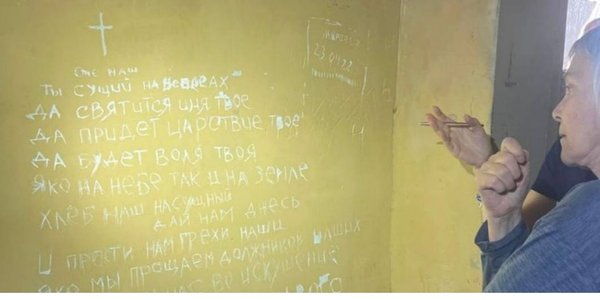 ОЧЕ НАШ
ТЫ СУЩИЙ НА НЕБЕАХ
ДА СВЯТИТСЯ ИМЯ ТВОЕ
ДА ПРИДЕТ ЦАРСТВИЕ ТВОЕ
ДА БУДЕТ ВОЛЯ ТВОЯ
ЯКО НА НЕБЕ ТАК И НА ЗЕМЛЕ
ХЛЕБ НАШ НАСУЩНЫЙ
ДАЙ НАМ ДНЕСЬ
И ПРОСТИ НАМ ГРЕХИ НАШИ
ЯКО МЫ ПРОЩАЕМ ДОЛЖНИКОВ НАШИХ
НАС ВО ИСКУШЕНИЕ
23.04.22